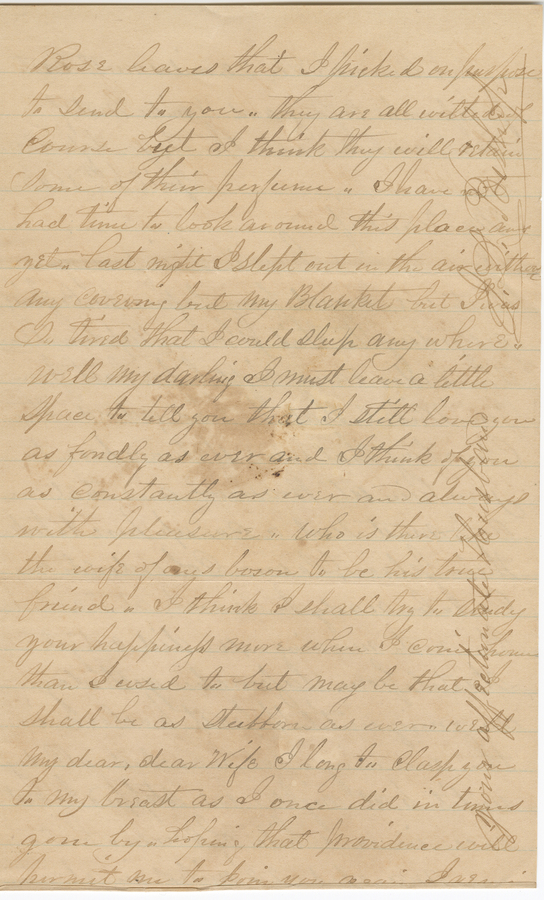 Rose leaves that I picked on purpose
to send to you " they are all wilted of
Course but I think they will retain
Some of their perfume " I have
had time to look around this place any
yet " last night I slept out in the air without
any covering but my Blanket but I was
So tired that I could sleep any where "
well my darling I must leave a little
Space to tell you that I still love you
as fondly as ever and I think of you
as constantly as ever and always
with pleasure " who is there like
the wife of ones bosom to be his true
friend " I think I shall try to study
your happiness more when I come home
than I used to but may be that I
shall be as stubborn as ever " well
my dear, dear Wife I long to clasp you
to my breast as I once did in times
gone by " hoping that providence will
permit me to join you again I remain
Your affectionate Husband